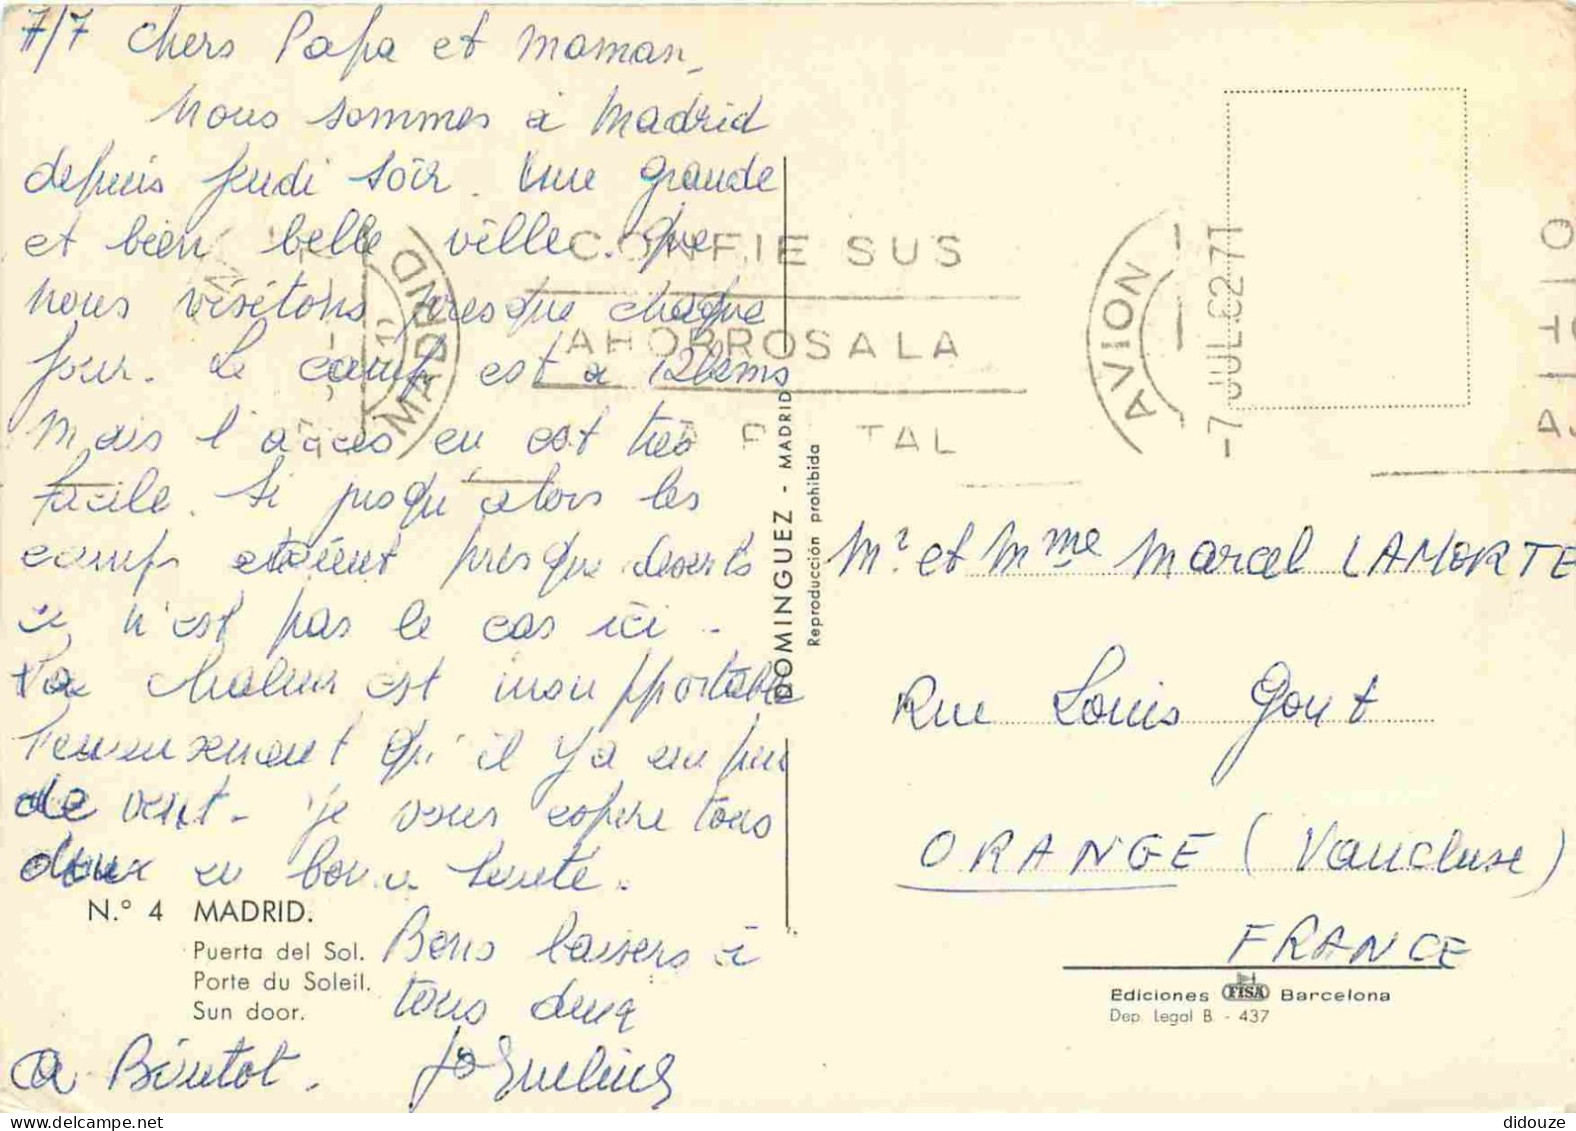 7/7 Chers Papa et maman,
Nous sommes à Madrid
depuis jeudi soir. Une grande
et bien belle ville. Que
nous visitons presque chaque
jour. Le camp est à 12 kms
Mais l'accès en est très
facile. Si jusqu'alors les
camps étaient presque déserts
ce n'est pas le cas ici.
La chaleur est insupportable
heureusement qu'il y a un peu
de vent. Je vous espère tous
deux en bonne santé.
Bons baisers à
tous deux
A Bientot.
N.º 4 MADRID.
Puerta del Sol.
Porte du Soleil.
Sun door.
DOMINGUEZ - MADRID
Reproducción prohibida
MADRID
CONFIE SUS
AHORROS A LA
P TAL
AVION
-7 JUL 62
Mr et Mme Marcel LAMORTE
Rue Louis Gout
ORANGE (Vaucluse)
FRANCE
Ediciones FISA Barcelona
Dep. Legal B. - 437
didouze